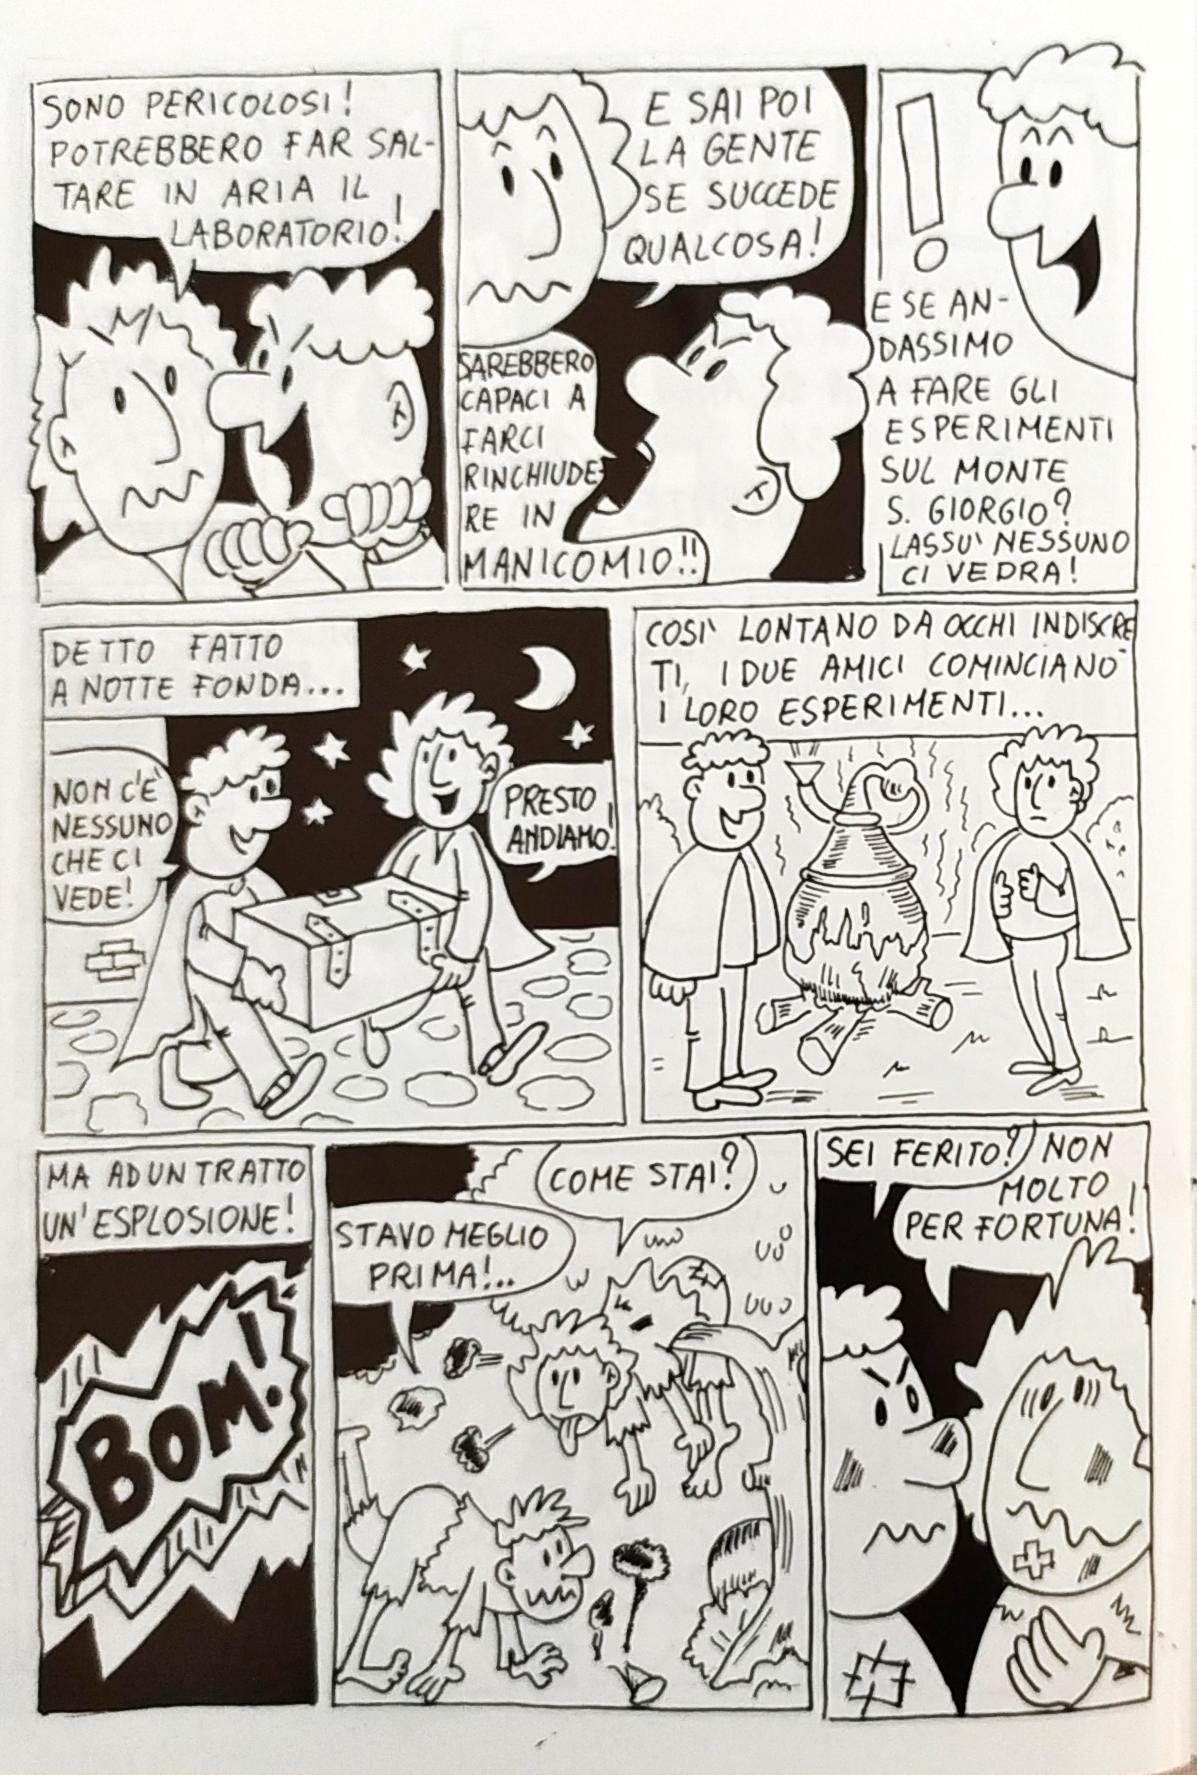 SONO PERICOLOSI!
POTREBBERO FAR SAL-
TARE IN ARIA IL
LABORATORIO!
E SAI POI
LA GENTE
SE SUCCEDE
QUALCOSA!
SAREBBERO
CAPACI A
FARCI
RINCHIUDE-
RE IN
MANICOMIO!!
!
E SE AN-
DASSIMO
A FARE GLI
ESPERIMENTI
SUL MONTE
S. GIORGIO?
LASSU' NESSUNO
CI VEDRA!
DETTO FATTO
A NOTTE FONDA...
NON C'È
NESSUNO
CHE CI
VEDE!
PRESTO
ANDIAMO!
COSI' LONTANO DA OCCHI INDISCRE
TI, I DUE AMICI COMINCIANO
I LORO ESPERIMENTI...
MA AD UN TRATTO
UN'ESPLOSIONE!
BOM!
COME STAI?
STAVO MEGLIO
PRIMA!..
SEI FERITO?
NON
MOLTO
PER FORTUNA!